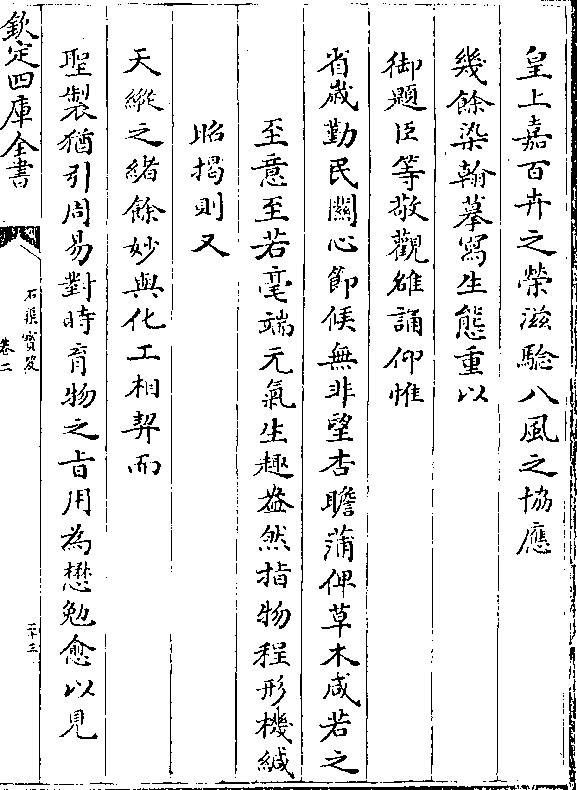 皇上嘉百卉之榮滋驗八風之協應
幾餘染翰摹寫生態重以
御題臣等敬觀雒誦仰惟
省歲勤民關心節候無非望杏瞻蒲俾草木咸若之
至意至若毫端元氣生趣盎然指物程形機緘
昭揭則又
天縱之緒餘妙與化工相契而
聖製猶引周易對時育物之旨用為懋勉愈以見
欽定四庫全書
石渠寶笈
卷二
二十三